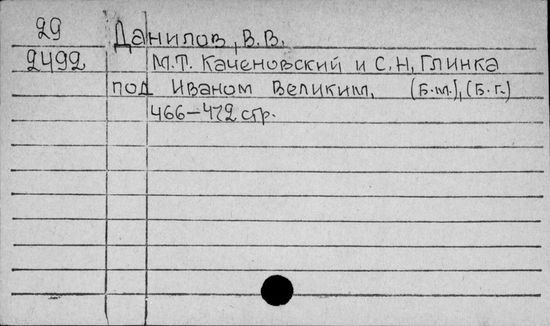 29 Данилов, В.В.
2492 М.Т. Каченовский и С.Н. Глинка
под Иваном Великим. (Б.м.), (Б.г.)
466-472 стр.